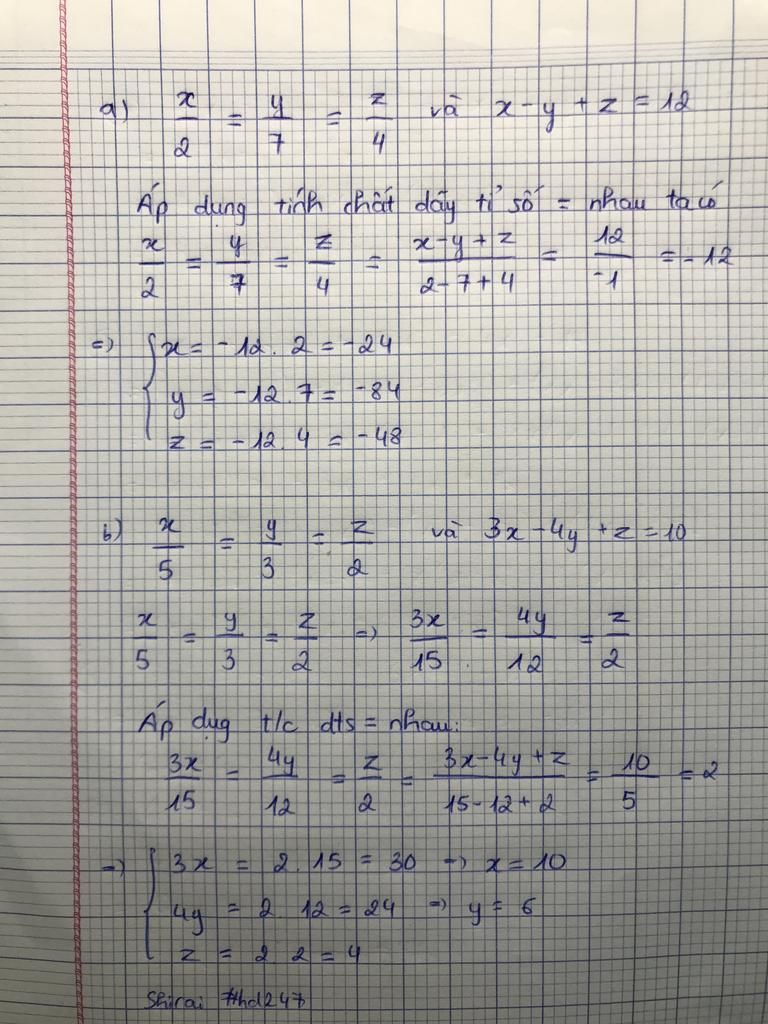 a) x/2 = y/7 = z/4 và x - y + z = 12
Áp dụng tính chất dãy tỉ số = nhau ta có
x/2 = y/7 = z/4 = (x - y + z)/(2 - 7 + 4) = 12/-1 = -12
=> { x = -12 . 2 = -24
y = -12 . 7 = -84
z = -12 . 4 = -48
b) x/5 = y/3 = z/2 và 3x - 4y + z = 10
x/5 = y/3 = z/2 => 3x/15 = 4y/12 = z/2
Áp dụg t/c dts = nhau:
3x/15 = 4y/12 = z/2 = (3x - 4y + z)/(15 - 12 + 2) = 10/5 = 2
=> { 3x = 2 . 15 = 30 => x = 10
4y = 2 . 12 = 24 => y = 6
z = 2 2 = 4
Shirai #hd247